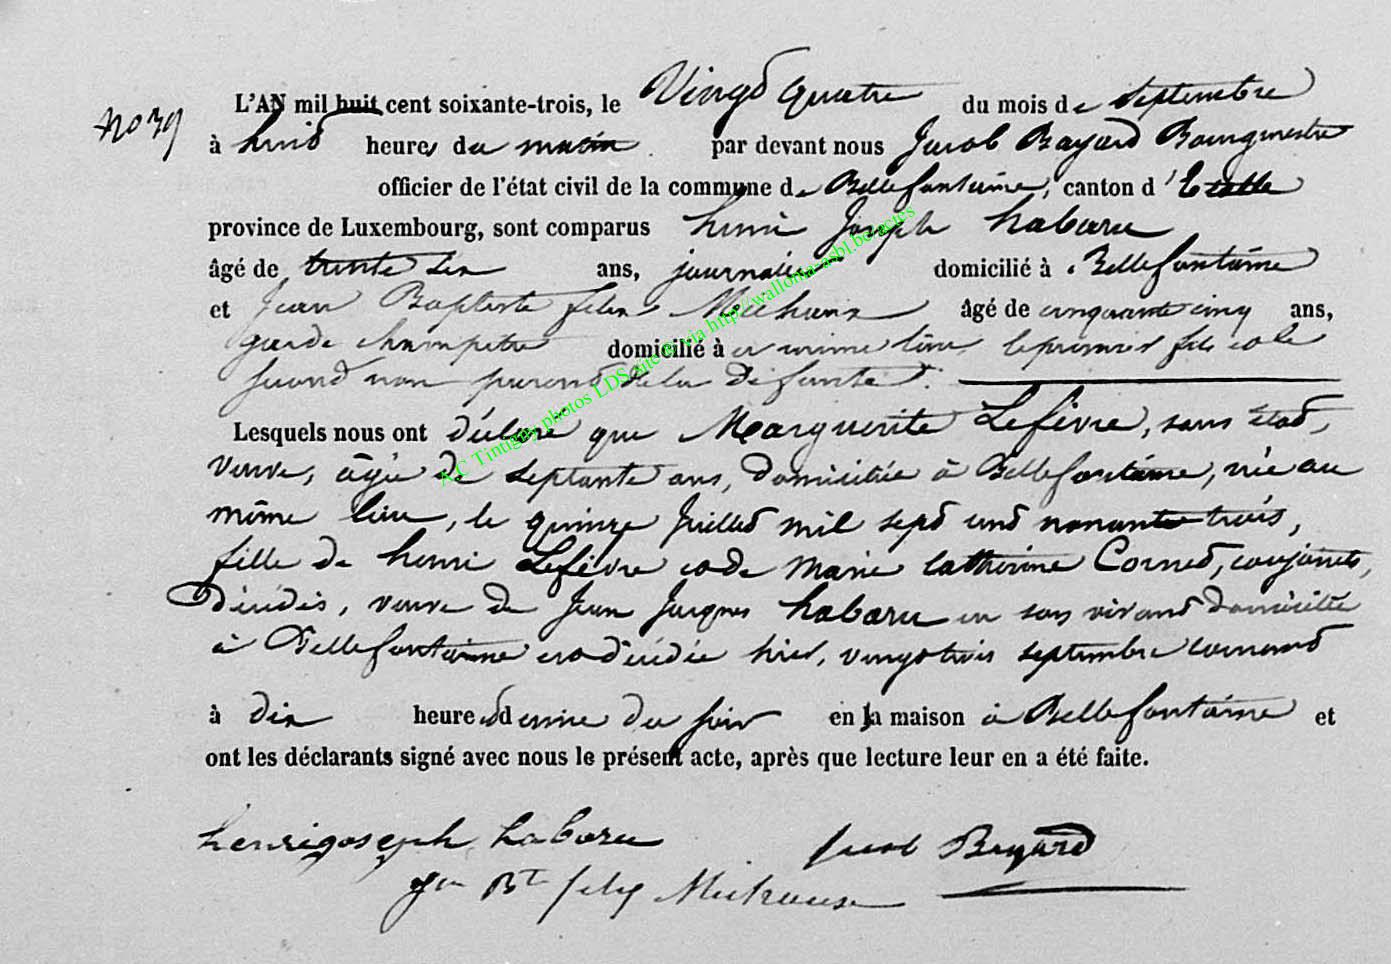 No 39
L'AN mil huit cent soixante-trois, le Vingt quatre du mois de septembre
à huit heures du matin par devant nous Jacob Bayard Bourgmestre
officier de l'état civil de la commune de Bellefontaine, canton d'Etalle
province de Luxembourg, sont comparus henri Joseph habaru
âgé de trente six ans, journalier domicilié à Bellefontaine
et Jean Baptiste felix Michaux âgé de cinquante cinq ans,
garde champetre domicilié à ce même lieu, le premier fils et le
second non parent de la défunte.
Lesquels nous ont déclaré que Marguerite Lefèvre, sans état,
veuve, âgée de septante ans, domiciliée à Bellefontaine, née au
même lieu, le quinze Juillet mil sept cent nonante trois,
fille de henri Lefèvre et de Marie Catherine Cornet, conjoints,
décédés, veuve de Jean Jacques habaru en son vivant domicilié
à Bellefontaine est décédée hier, vingt trois septembre courant
à dix heures et demie du soir en la maison à Bellefontaine et
ont les déclarants signé avec nous le présent acte, après que lecture leur en a été faite.
henrigoseph habaru Jacob Bayard
Jn Bte felix Michaux
A.C Tintigny photos LDS site & via http://wallonia-asbl.be/actes